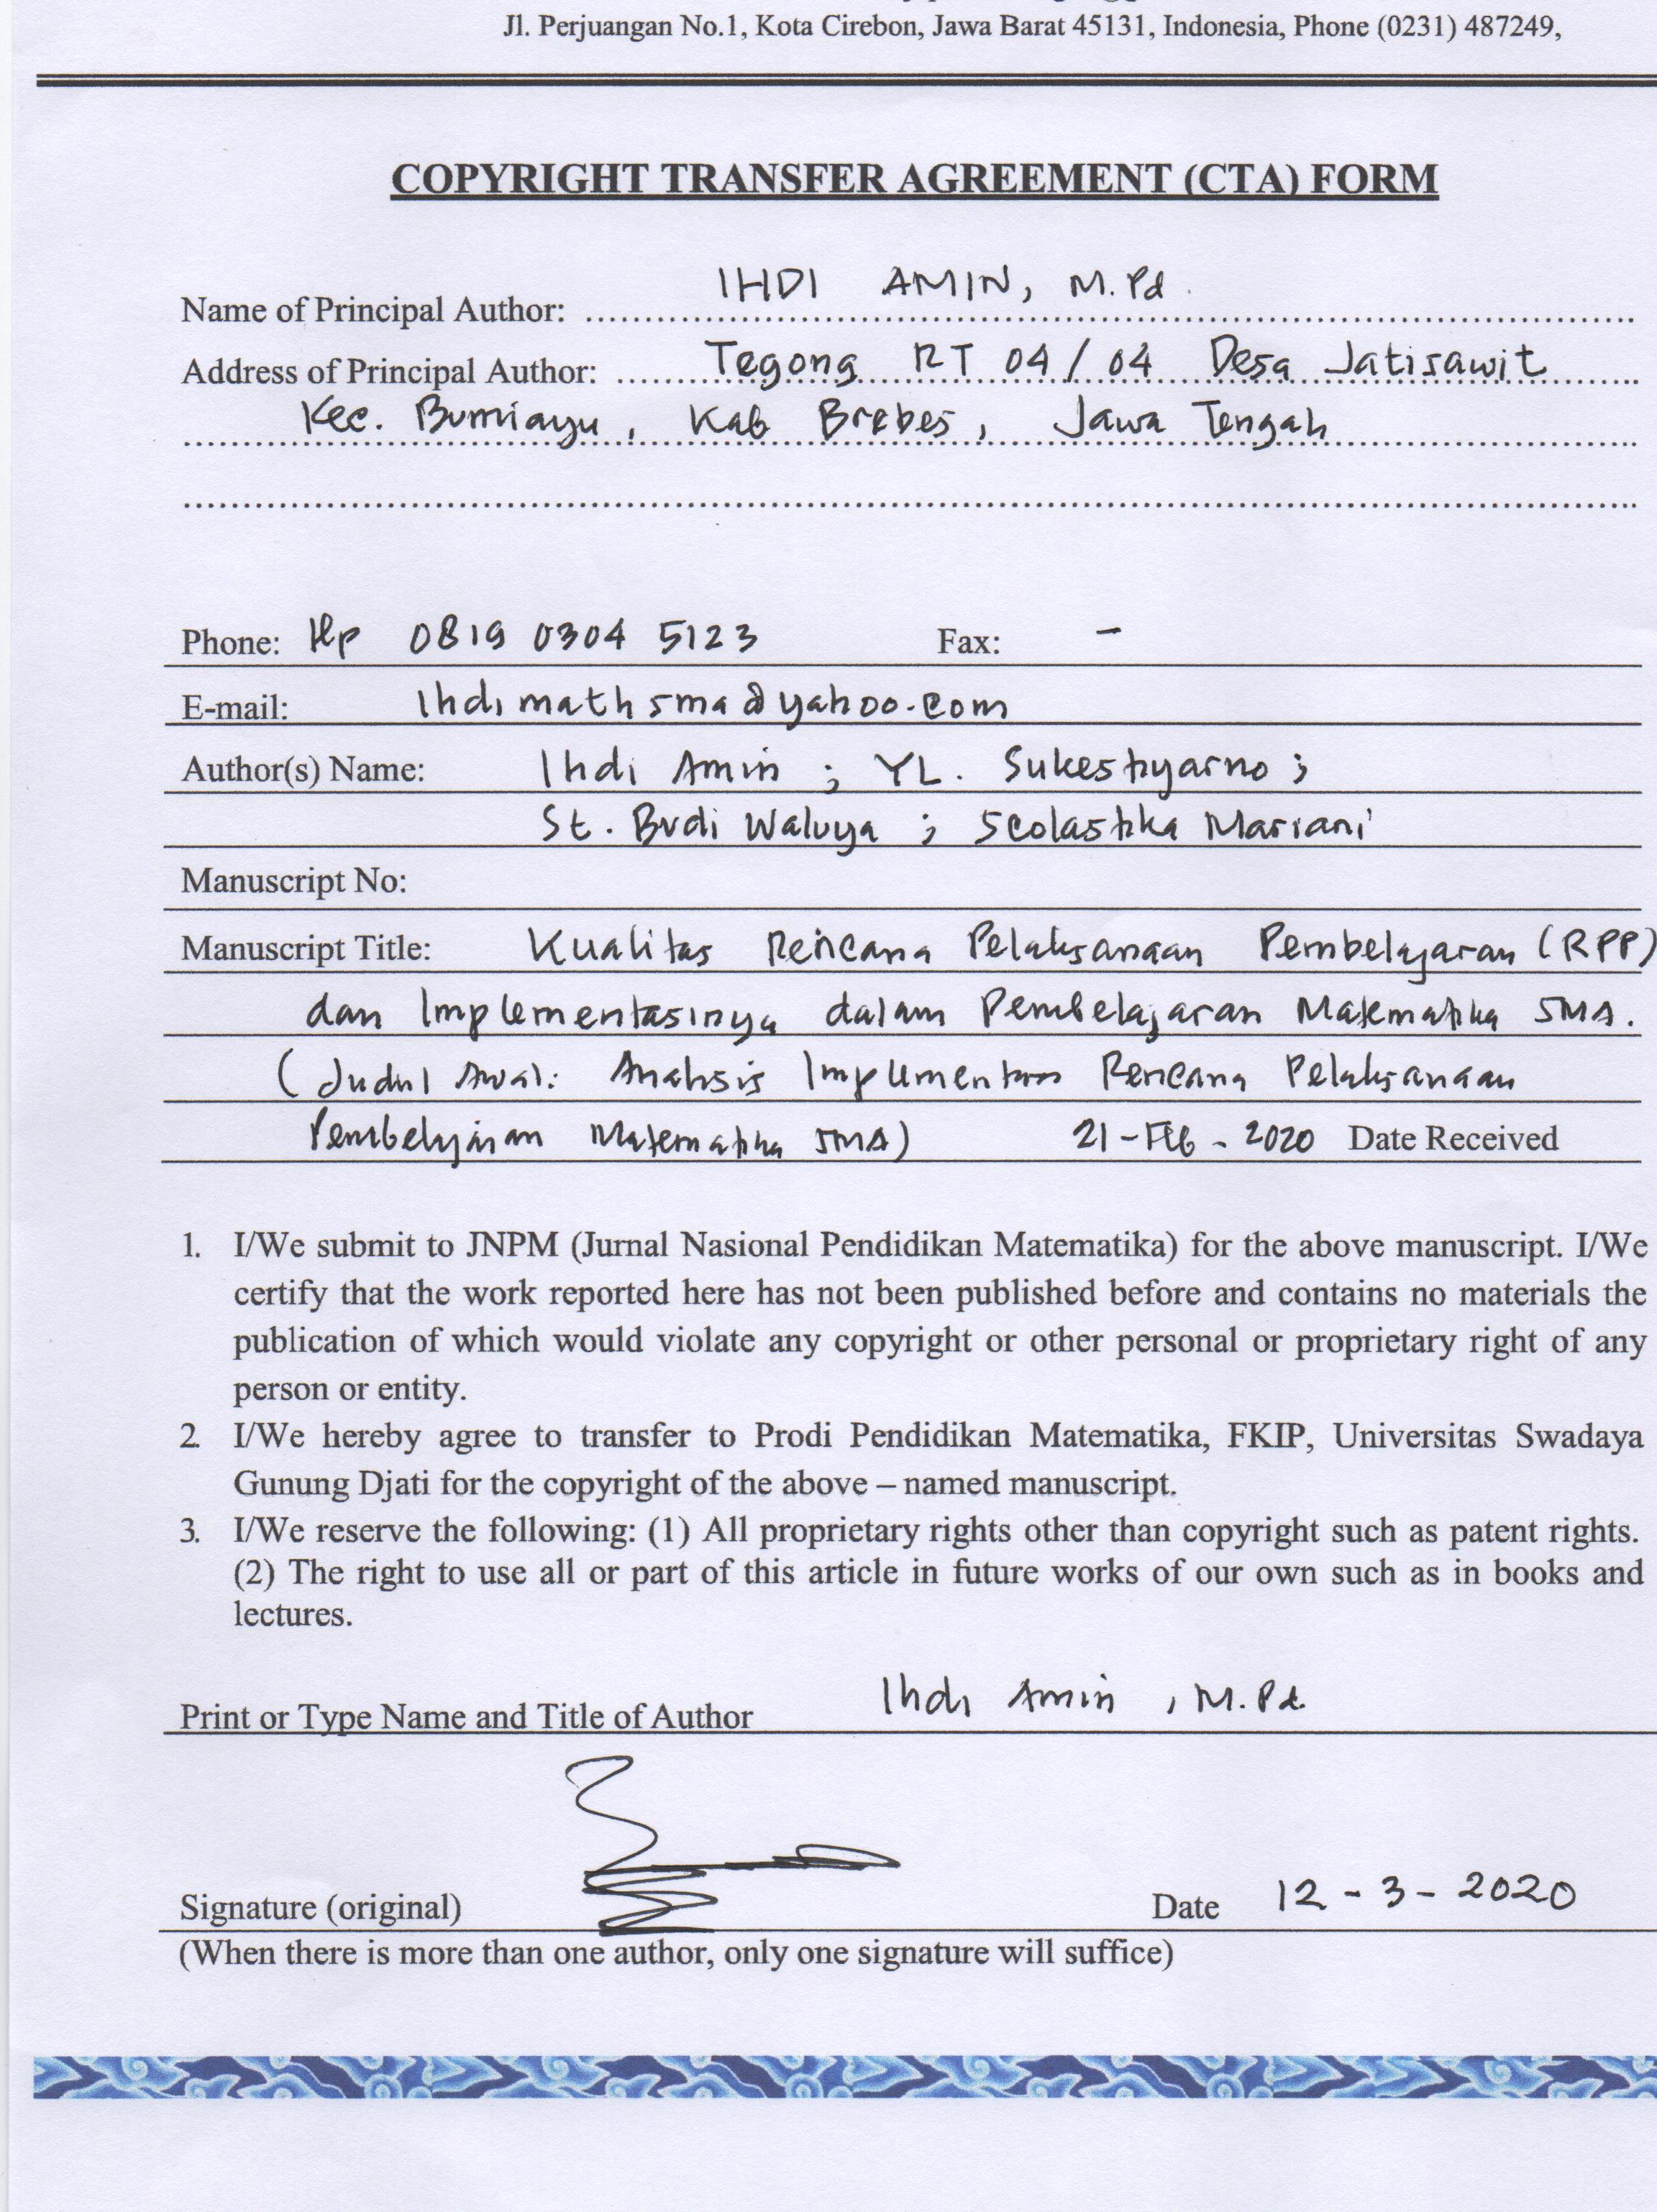 Jl. Perjuangan No.1, Kota Cirebon, Jawa Barat 45131, Indonesia, Phone (0231) 487249,
COPYRIGHT TRANSFER AGREEMENT (CTA) FORM
Name of Principal Author: IHDI AMIN, M.Pd.
Address of Principal Author: Tegong RT 04 / 04 Desa Jatisawit
Kec. Bumiayu, Kab Brebes, Jawa Tengah
Phone: Hp 0819 0304 5123 Fax: -
E-mail: Ihdimathsma@yahoo.com
Author(s) Name: Ihdi Amin ; YL. Sukestiyarno ;
St. Budi Waluya ; Scolastika Mariani
Manuscript No:
Manuscript Title: Kualitas Rencana Pelaksanaan Pembelajaran (RPP)
dan Implementasinya dalam Pembelajaran Matematika SMA.
(Judul Awal: Analisis Implementasi Rencana Pelaksanaan
Pembelajaran Matematika SMA) 21-Feb-2020 Date Received
1. I/We submit to JNPM (Jurnal Nasional Pendidikan Matematika) for the above manuscript. I/We
certify that the work reported here has not been published before and contains no materials the
publication of which would violate any copyright or other personal or proprietary right of any
person or entity.
2. I/We hereby agree to transfer to Prodi Pendidikan Matematika, FKIP, Universitas Swadaya
Gunung Djati for the copyright of the above – named manuscript.
3. I/We reserve the following: (1) All proprietary rights other than copyright such as patent rights.
(2) The right to use all or part of this article in future works of our own such as in books and
lectures.
Print or Type Name and Title of Author Ihdi Amin, M.Pd.
Signature (original) Date 12-3-2020
(When there is more than one author, only one signature will suffice)